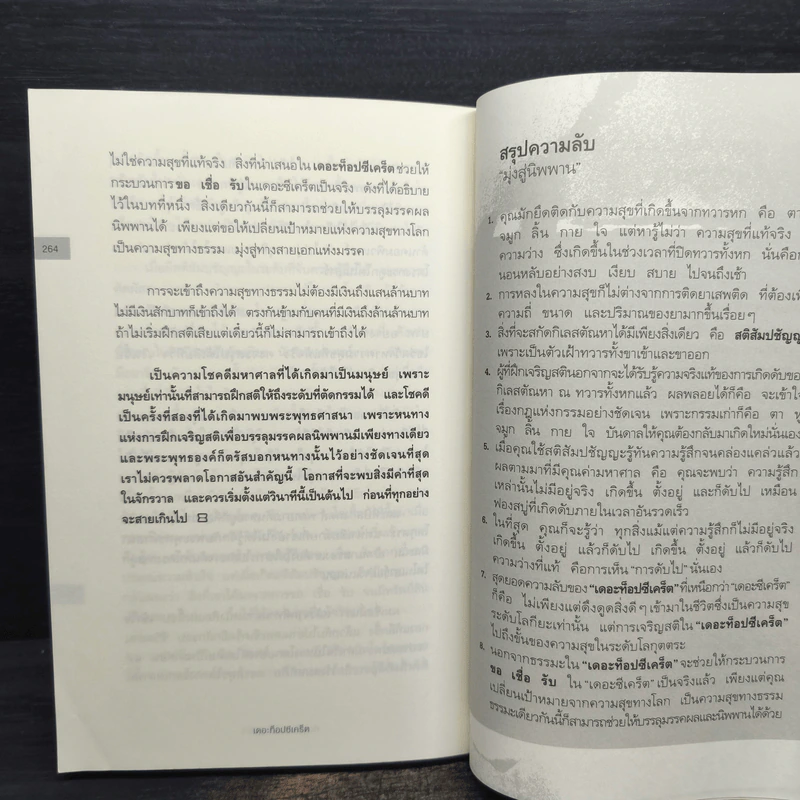 ไม่ใช่ความสุขที่แท้จริง สิ่งที่นำเสนอใน เดอะท็อปซีเคร็ต ช่วยให้
กระบวนการ ขอ เชื่อ รับ ในเดอะซีเคร็ตเป็นจริง ดังที่ได้อธิบาย
ไว้ในบทที่หนึ่ง สิ่งเดียวกันนี้ก็สามารถช่วยให้บรรลุมรรคผล
นิพพานได้ เพียงแต่ขอให้เปลี่ยนเป้าหมายแห่งความสุขทางโลก
เป็นความสุขทางธรรม มุ่งสู่ทางสายเอกแห่งมรรค
264
การจะเข้าถึงความสุขทางธรรมไม่ต้องมีเงินถึงแสนล้านบาท
ไม่มีเงินสักบาทก็เข้าถึงได้ ตรงกันข้ามกับคนที่มีเงินถึงล้านล้านบาท
ถ้าไม่เริ่มฝึกสติเสียแต่เดี๋ยวนี้ก็ไม่สามารถเข้าถึงได้
เป็นความโชคดีมหาศาลที่ได้เกิดมาเป็นมนุษย์ เพราะ
มนุษย์เท่านั้นที่สามารถฝึกสติให้ถึงระดับที่ตัดกรรมได้ และโชคดี
เป็นครั้งที่สองที่ได้เกิดมาพบพระพุทธศาสนา เพราะหนทาง
แห่งการฝึกเจริญสติเพื่อบรรลุมรรคผลนิพพานมีเพียงทางเดียว
และพระพุทธองค์ก็ตรัสบอกหนทางนั้นไว้อย่างชัดเจนที่สุด
เราไม่ควรพลาดโอกาสอันสำคัญนี้ โอกาสที่จะพบสิ่งมีค่าที่สุด
ในจักรวาล และควรเริ่มตั้งแต่วินาทีนี้เป็นต้นไป ก่อนที่ทุกอย่าง
จะสายเกินไป
เดอะท็อปซีเคร็ต
สรุปความลับ
"มุ่งสู่นิพพาน"
1. คุณมักยึดติดกับความสุขที่เกิดขึ้นจากทวารหก คือ ตา
จมูก ลิ้น กาย ใจ แต่หารู้ไม่ว่า ความสุขที่แท้จริง
ความว่าง ซึ่งเกิดขึ้นในช่วงเวลาที่ปิดทวารทั้งหก นั่นคือ
นอนหลับอย่างสงบ เงียบ สบาย ไปจนถึงเช้า
2. การหลงในความสุขก็ไม่ต่างจากการติดยาเสพติด ที่ต้อง
ความถี่ ขนาด และปริมาณของยามากขึ้นเรื่อยๆ
3. สิ่งที่จะสกัดกิเลสตัณหาได้มีเพียงสิ่งเดียว คือ สติสัมปชัญญ
เพราะเป็นตัวเฝ้าทวารทั้งขาเข้าและขาออก
4. ผู้ที่ฝึกเจริญสตินอกจากจะได้รับรู้ความจริงแท้ของการเกิดดับของ
กิเลสตัณหา ณ ทวารทั้งหกแล้ว ผลพลอยได้ก็คือ จะเข้าใจ
เรื่องกฎแห่งกรรมอย่างชัดเจน เพราะกรรมเก่าก็คือ ตา หู
จมูก ลิ้น กาย ใจ บันดาลให้คุณต้องกลับมาเกิดใหม่นั่นเอง
5. เมื่อคุณใช้สติสัมปชัญญะรู้ทันความรู้สึกจนคล่องแคล่วแล้ว
ผลตามมาที่มีคุณค่ามหาศาล คือ คุณจะพบว่า ความรู้สึก
เหล่านั้นไม่มีอยู่จริง เกิดขึ้น ตั้งอยู่ และก็ดับไป เหมือน
ฟองสบู่ที่เกิดดับภายในเวลาอันรวดเร็ว
6. ในที่สุด คุณก็จะรู้ว่า ทุกสิ่งแม้แต่ความรู้สึกก็ไม่มีอยู่จริง
เกิดขึ้น ตั้งอยู่ แล้วก็ดับไป เกิดขึ้น ตั้งอยู่ แล้วก็ดับไป
ความว่างที่แท้ คือการเห็น "การดับไป" นั่นเอง
7. สุดยอดความลับของ "เดอะท็อปซีเคร็ต" ที่เหนือกว่า "เดอะซีเคร็ต"
ก็คือ ไม่เพียงแต่ดึงดูดสิ่งดีๆ เข้ามาในชีวิตซึ่งเป็นความสุข
ระดับโลกียะเท่านั้น แต่การเจริญสติใน "เดอะท็อปซีเคร็ต"
ไปถึงขั้นของความสุขในระดับโลกุตตระ
8. นอกจากธรรมะใน "เดอะท็อปซีเคร็ต" จะช่วยให้กระบวนการ
ขอ เชื่อ รับ ใน "เดอะซีเคร็ต" เป็นจริงแล้ว เพียงแต่คุณ
เปลี่ยนเป้าหมายจากความสุขทางโลก เป็นความสุขทางธรรม
ธรรมะเดียวกันนี้ก็สามารถช่วยให้บรรลุมรรคผลและนิพพานได้ด้วย